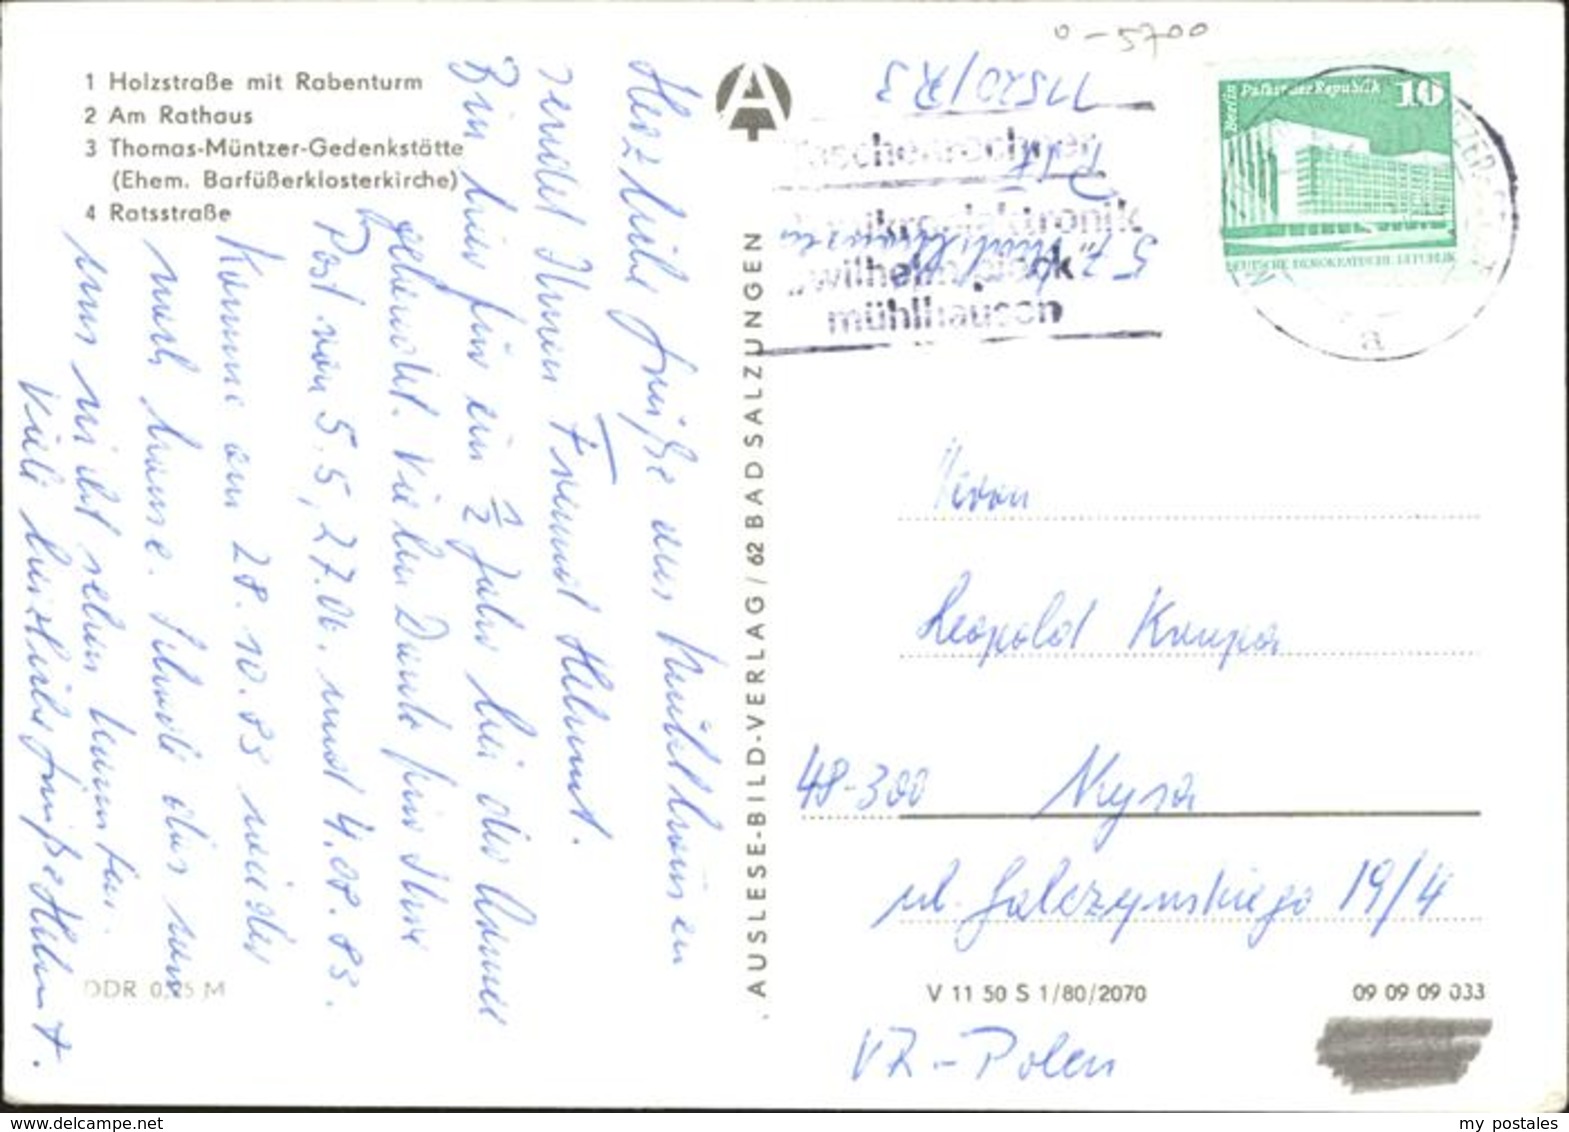 0-5700
1 Holzstraße mit Rabenturm
2 Am Rathaus
3 Thomas-Müntzer-Gedenkstätte
(Ehem. Barfüßerklosterkirche)
4 Ratsstraße
Herzliche Grüße aus Mühlhausen
sendet Ihnen Freund Helmut.
Bin hier für ein 1/2 Jahr bei der Armee
Vielen Dank für Ihre
Post vom 5.5, 27.06. und 4.08.83.
Komme am 28.10.83 wieder
nach hause. Schade das wir
uns nicht sehen konnten.
Viele herzliche Grüße Helmut.
DDR 0,25 M
A
AUSLESE-BILD-VERLAG / 62 BAD SALZUNGEN
11520/R3
57 Mühlhausen
taschenrechner
mikroelektronik
"wilhelm pieck
mühlhausen
Berlin Palast der Republik 10
DEUTSCHE DEMOKRATISCHE REPUBLIK
a
Herrn
Leopold Krupa
48-300 Nysa
ul. Galczynskiego 19/4
V 11 50 S 1/80/2070
09 09 09 033
VR-Polen
my postales
www.delcampe.net